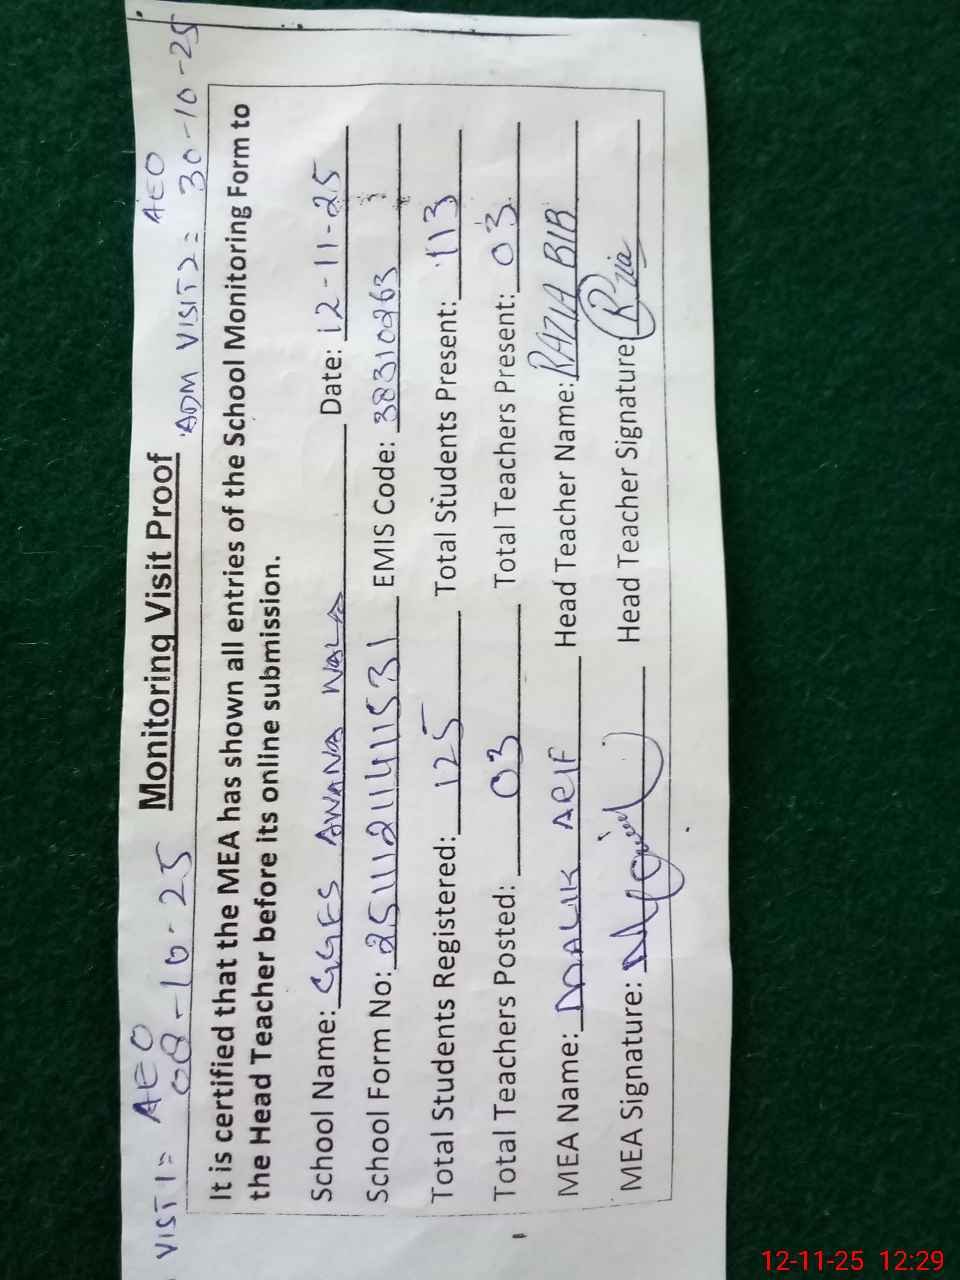 VISIT 1 = AEO 08-10-25
ADM VISIT 2 = AEO 30-10-25
Monitoring Visit Proof
It is certified that the MEA has shown all entries of the School Monitoring Form to
the Head Teacher before its online submission.
School Name: GGES AWANA WALA Date: 12-11-25
School Form No: EMIS Code: 38310263
Total Students Registered: 125 Total Students Present: 113
Total Teachers Posted: 03 Total Teachers Present: 03
MEA Name: MALIK ARIF Head Teacher Name: RAZIA BIB
MEA Signature: Head Teacher Signature:
12-11-25 12:29